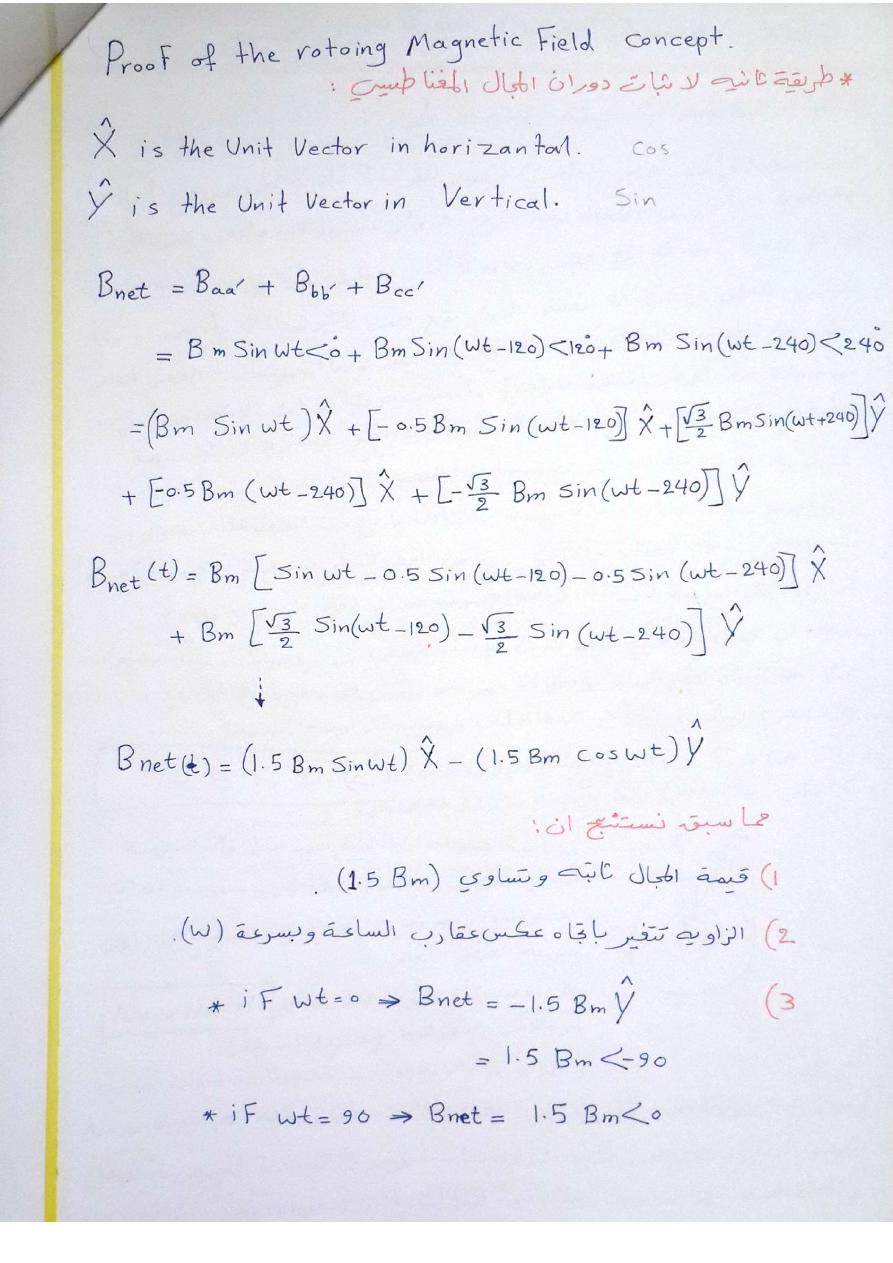 Proof of the rotoing Magnetic Field concept.
* طريقة ثانيه لاثبات دوران المجال المغناطيسي :
X̂ is the Unit Vector in horizantal. cos
Ŷ is the Unit Vector in Vertical. Sin
Bnet = Baa' + Bbb' + Bcc'
= Bm Sin wt<0° + Bm Sin(wt-120)<120° + Bm Sin(wt-240)<240°
=(Bm Sin wt) X̂ + [-0.5 Bm Sin (wt-120)] X̂ + [√3/2 Bm Sin(wt+240)] Ŷ
+ [-0.5 Bm (wt-240)] X̂ + [-√3/2 Bm Sin(wt-240)] Ŷ
Bnet (t) = Bm [Sin wt - 0.5 Sin (wt-120) - 0.5 Sin (wt-240)] X̂
+ Bm [√3/2 Sin(wt-120) - √3/2 Sin (wt-240)] Ŷ
↓
Bnet(t) = (1.5 Bm Sin wt) X̂ - (1.5 Bm cos wt) Ŷ
مما سبق نستنتج ان :
1) قيمة المجال ثابته وتساوي (1.5 Bm) .
2) الزاويه تتغير باتجاه عكس عقارب الساعة وبسرعة (w).
3) * iF wt=0 ⇒ Bnet = -1.5 Bm Ŷ
= 1.5 Bm <-90
* iF wt = 90 ⇒ Bnet = 1.5 Bm<0